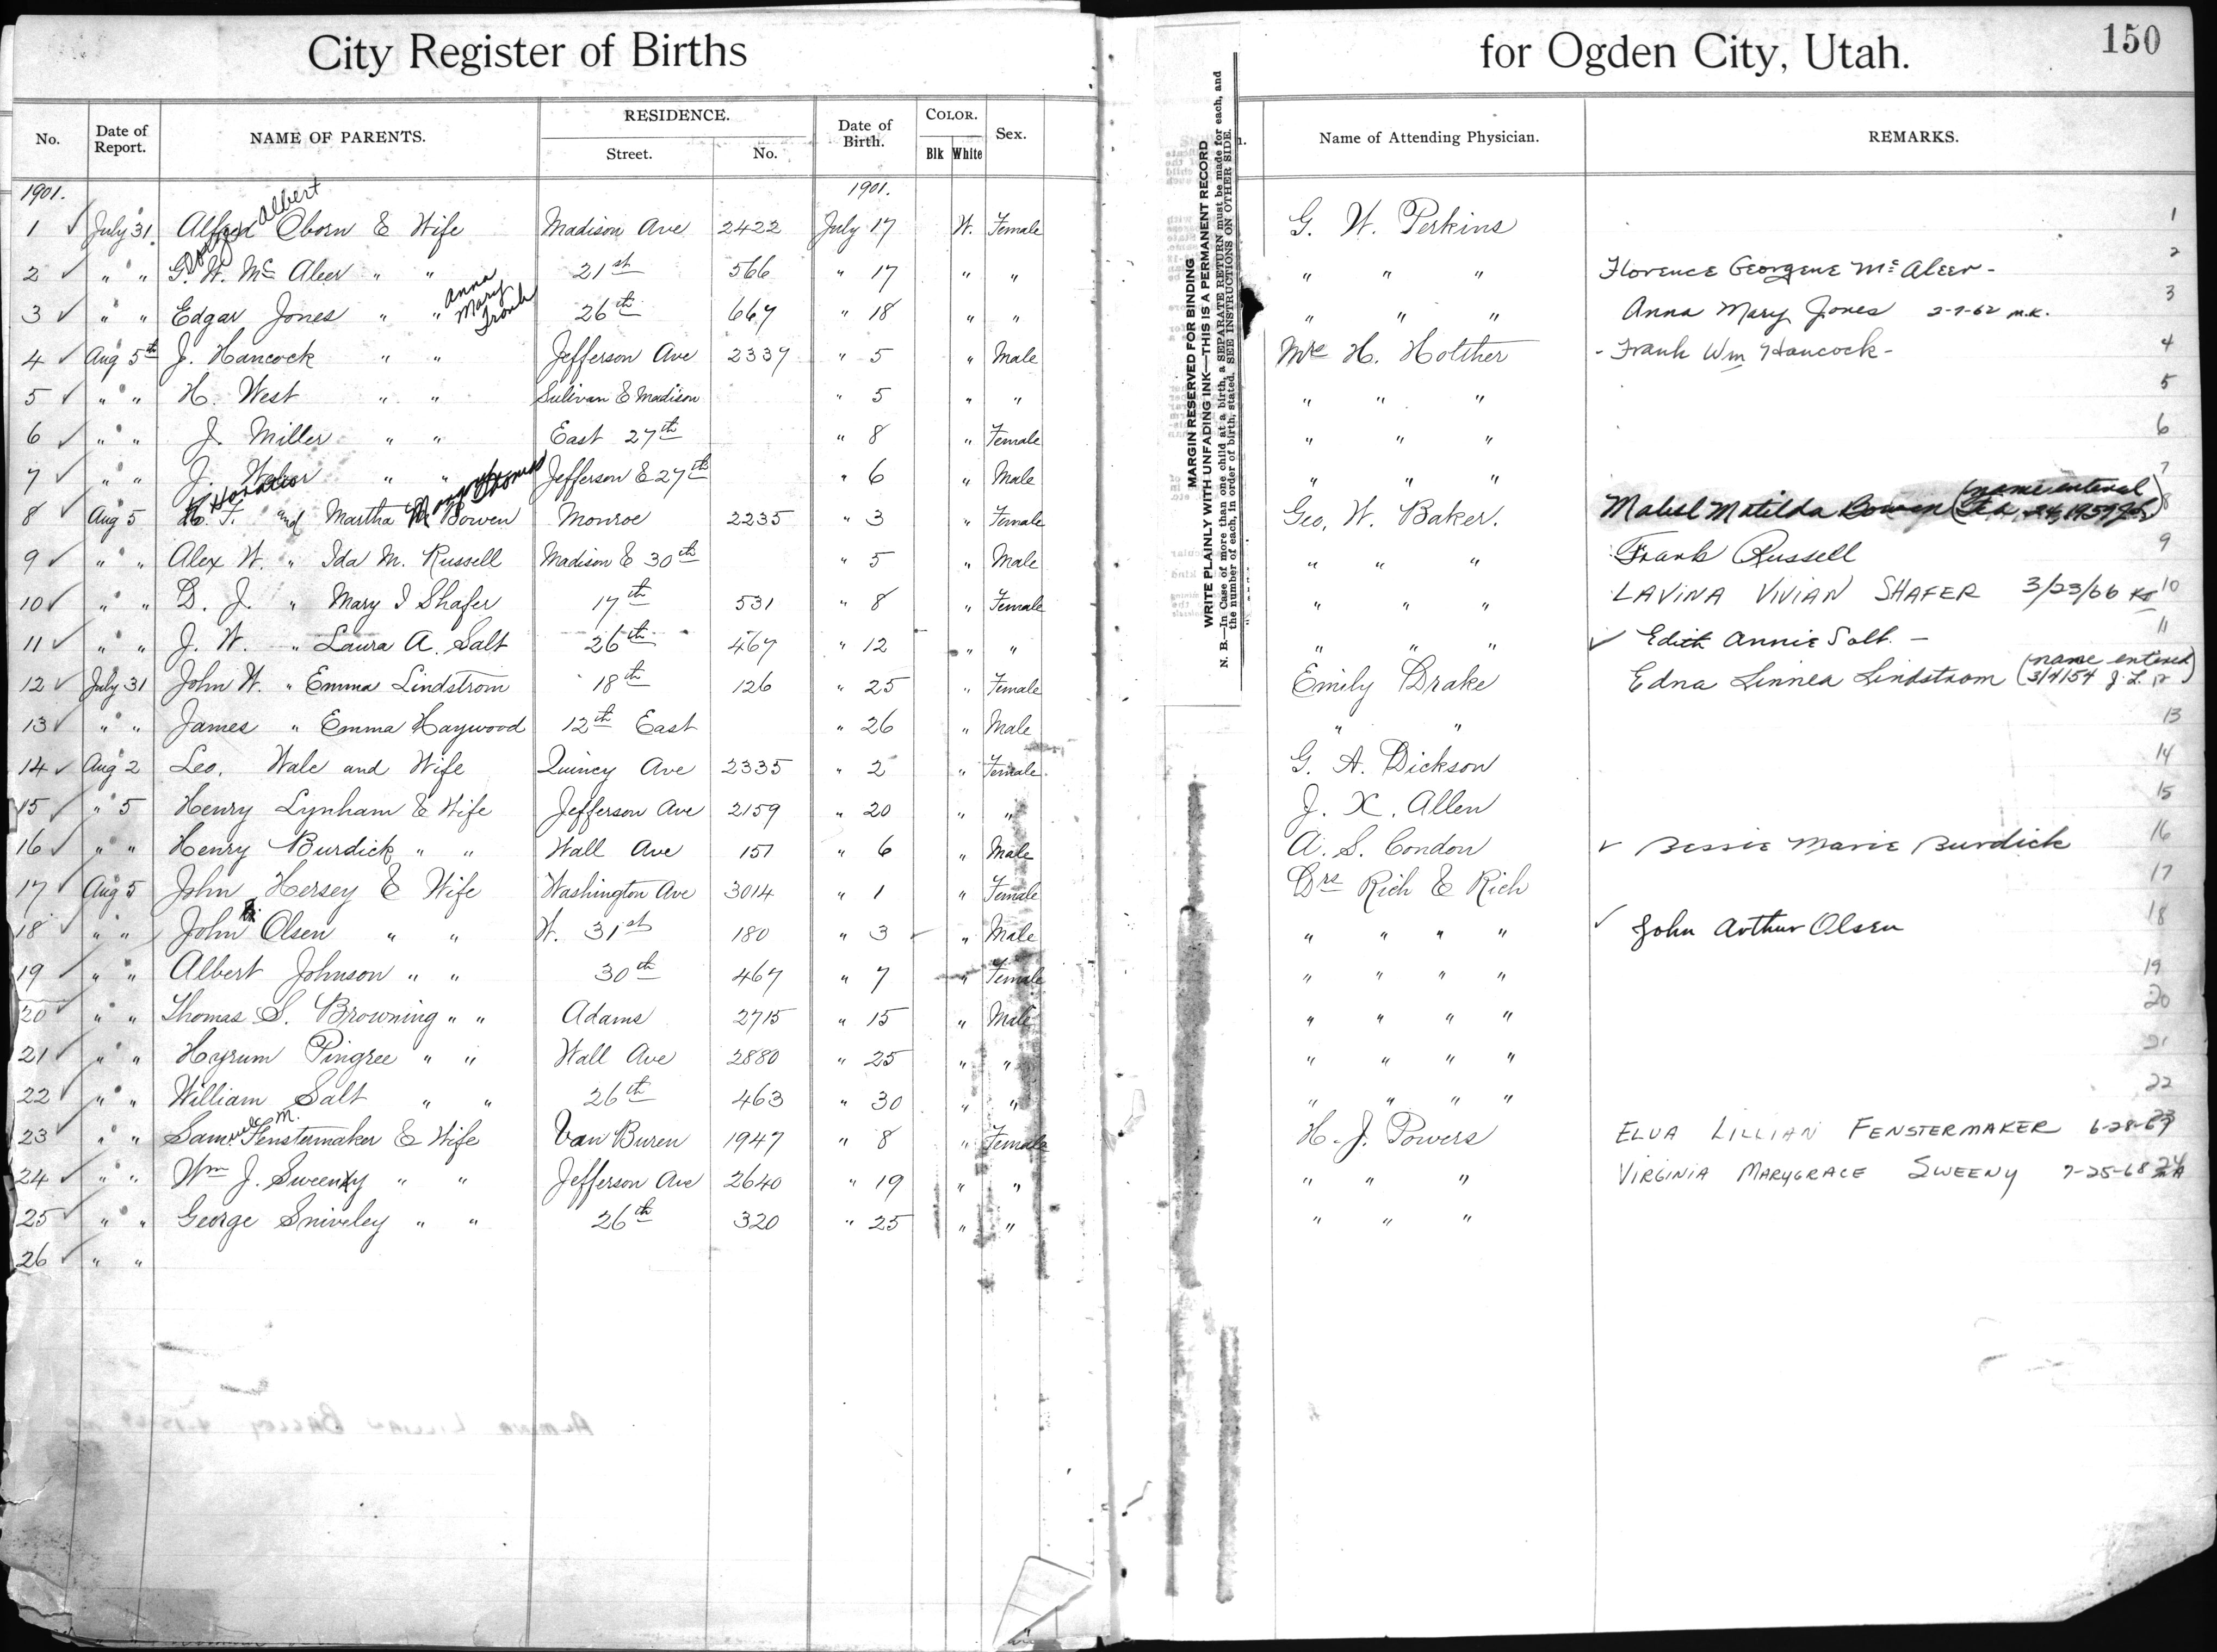 City Register of Births for Ogden City, Utah. 150
No. Date of Report. NAME OF PARENTS. RESIDENCE. Street. No. Date of Birth. COLOR. Blk White Sex. Name of Attending Physician. REMARKS.
MARGIN RESERVED FOR BINDING
WRITE PLAINLY WITH UNFADING INK—THIS IS A PERMANENT RECORD
N. B.—In Case of more than one child at a birth, a SEPARATE RETURN must be made for each, and
the number of each, in order of birth, stated. SEE INSTRUCTIONS ON OTHER SIDE.
1901. 1901.
Albert
1 ✓ July 31 Alfred Oborn & Wife Madison Ave 2422 July 17 W. Female G. W. Perkins 1
2 ✓ " " G. W. Mc Aleer " " 21st 566 " 17 " " " " " Florence Georgene Mc Aleer - 2
Anna Mary
3 ✓ " " Edgar Jones " " 26th 667 " 18 " " " " " Anna Mary Jones 2-7-62 M.K. 3
4 ✓ Aug 5th J. Hancock " " Jefferson Ave 2339 " 5 " Male H. Holther - Frank Wm Hancock - 4
5 ✓ " " H. West " " Sulivan & Madison " 5 " " " " " 5
6 ✓ " " J. Miller " " East 27th " 8 " Female " " " 6
7 ✓ " " J. " " Jefferson & 27th " 6 " Male " " " 7
Horatio Thomas
8 ✓ Aug 5 H. T. and Martha M Bowen Monroe 2235 " 3 " Female Geo. W. Baker. Mabel Matilda Bowen (name entered 1959) 8
9 ✓ " " Alex W. " Ida M. Russell Madison & 30th " 5 " Male " " " Frank Russell 9
10 ✓ " " D. J. " Mary I Shafer 17th 531 " 8 " Female " " " LAVINA VIVIAN SHAFER 3/23/66 10
11 ✓ " " J. W. " Laura A. Salt 26th 467 " 12 " " " " " ✓ Edith Annie Salt. - 11
12 ✓ July 31 John W. " Emma Lindstrom 18th 126 " 25 " Female Emily Drake Edna Linnea Lindstrom (name entered 3/4/54 J.L.)
13 ✓ " " James " Emma Haywood 12th East " 26 " Male " " 13
14 ✓ Aug 2 Leo. Wale and Wife Quincy Ave 2335 " 2 " Female G. A. Dickson 14
15 ✓ " 5 Henry Lynham & Wife Jefferson Ave 2159 " 20 " " J. X. Allen 15
16 ✓ " " Henry Burdick " " Wall Ave 151 " 6 " Male A. S. Condon ✓ Bessie Marie Burdick 16
17 ✓ Aug 5 John Hersey & Wife Washington Ave 3014 " 1 " Female Drs Rich & Rich 17
18 ✓ " " John Olsen " " W. 31st 180 " 3 " Male " " " " ✓ John Arthur Olsen 18
19 ✓ " " Albert Johnson " " 30th 467 " 7 " Female " " " " 19
20 ✓ " " Thomas S. Browning " " Adams 2715 " 15 " Male " " " " 20
21 ✓ " " Hyrum Pingree " " Wall Ave 2880 " 25 " " " " " " 21
22 ✓ " " William Salt " " 26th 463 " 30 " " " " " " 22
23 ✓ " " Samuel M. Fenstermaker & Wife Van Buren 1947 " 8 " Female H. J. Powers ELVA LILLIAN FENSTERMAKER 6-28-67 23
24 ✓ " " Wm J. Sweeny " " Jefferson Ave 2640 " 19 " " " " " VIRGINIA MARYGRACE SWEENY 7-25-68 24
25 ✓ " " George Sniveley " " 26th 320 " 25 " " " " "
26 ✓ " "